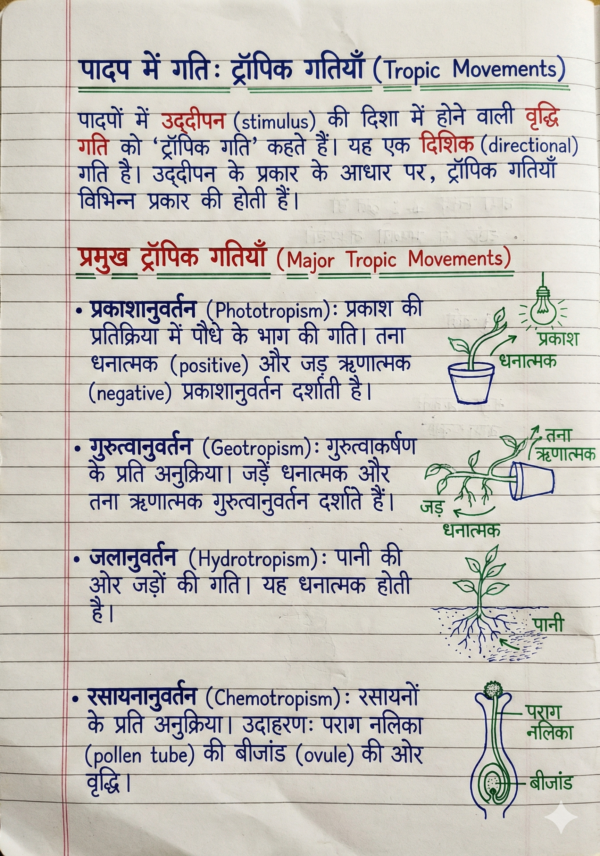 पादप में गति: ट्रॉपिक गतियाँ (Tropic Movements)
पादपों में उद्दीपन (stimulus) की दिशा में होने वाली वृद्धि
गति को ‘ट्रॉपिक गति’ कहते हैं। यह एक दिशिक (directional)
गति है। उद्दीपन के प्रकार के आधार पर, ट्रॉपिक गतियाँ
विभिन्न प्रकार की होती हैं।
प्रमुख ट्रॉपिक गतियाँ (Major Tropic Movements)
• प्रकाशानुवर्तन (Phototropism): प्रकाश की
प्रतिक्रिया में पौधे के भाग की गति। तना
धनात्मक (positive) और जड़ ऋणात्मक
(negative) प्रकाशानुवर्तन दर्शाती है।
प्रकाश
धनात्मक
• गुरुत्वानुवर्तन (Geotropism): गुरुत्वाकर्षण
के प्रति अनुक्रिया। जड़ें धनात्मक और
तना ऋणात्मक गुरुत्वानुवर्तन दर्शाते हैं।
तना
ऋणात्मक
जड़
धनात्मक
• जलानुवर्तन (Hydrotropism): पानी की
ओर जड़ों की गति। यह धनात्मक होती
है।
पानी
• रसायनानुवर्तन (Chemotropism): रसायनों
के प्रति अनुक्रिया। उदाहरण: पराग नलिका
(pollen tube) की बीजांड (ovule) की ओर
वृद्धि।
पराग
नलिका
बीजांड